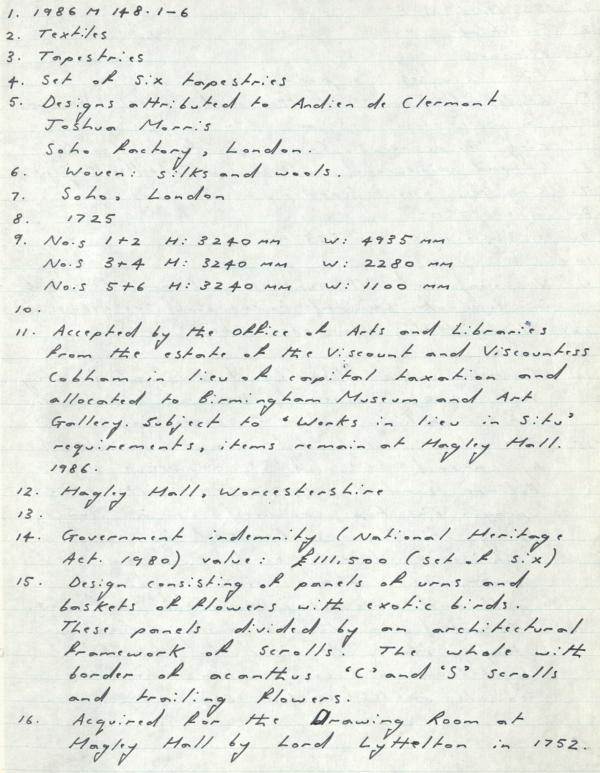 1. 1986 M 148.1-6
2. Textiles
3. Tapestries
4. Set of six tapestries
5. Designs attributed to Andien de Clermont
Joshua Morris
Soho Factory, London.
6. Woven: silks and wools.
7. Soho, London
8. 1725
9. No.s 1+2 H: 3240 mm W: 4935 mm
No.s 3+4 H: 3240 mm W: 2280 mm
No.s 5+6 H: 3240 mm W: 1100 mm
10.
11. Accepted by the Office of Arts and Libraries
from the estate of the Viscount and Viscountess
Cobham in lieu of capital taxation and
allocated to Birmingham Museum and Art
Gallery. Subject to 'Works in lieu in Situ'
requirements, items remain at Hagley Hall.
1986.
12. Hagley Hall, Worcestershire
13.
14. Government indemnity (National Heritage
Act. 1980) value: £111,500 (set of six)
15. Design consisting of panels of urns and
baskets of flowers with exotic birds.
These panels divided by an architectural
framework of scrolls. The whole with
border of acanthus 'C' and 'S' scrolls
and trailing flowers.
16. Acquired for the Drawing Room at
Hagley Hall by Lord Lyttelton in 1752.